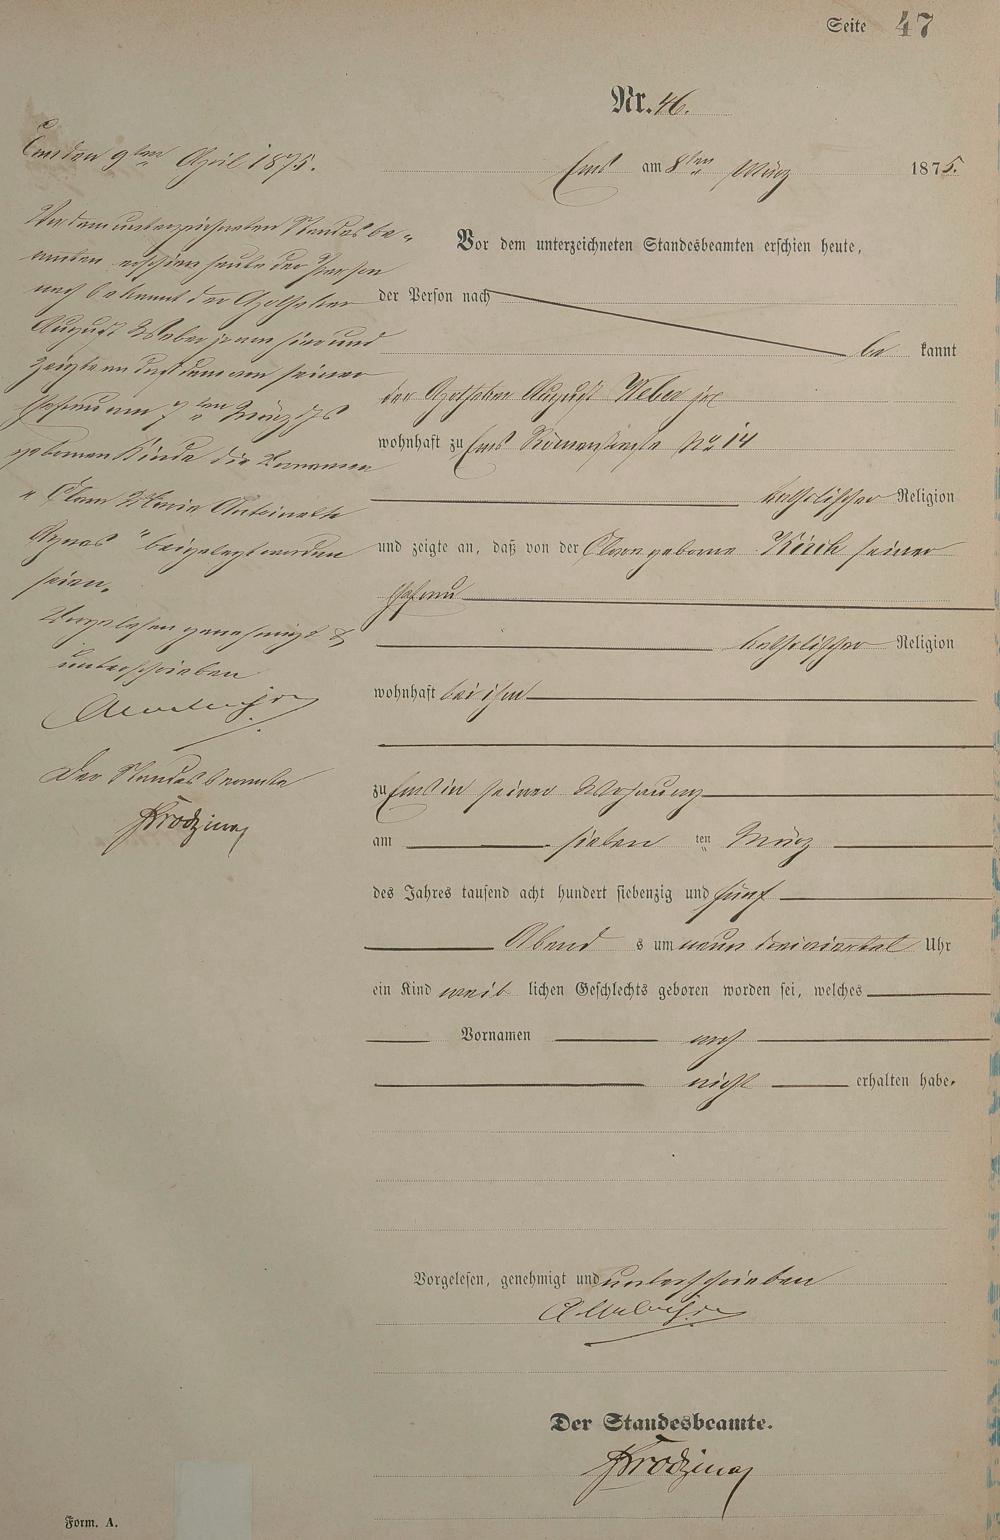 Seite 47
Nr. 46.
Ems am 8ten März 1875.
Vor dem unterzeichneten Standesbeamten erschien heute,
der Person nach
be kannt
der Apotheker August Weber jr
wohnhaft zu Ems Römerstraße No 14
katholischer Religion
und zeigte an, daß von der Clara geborne Kirch seiner
Ehefrau
katholischer Religion
wohnhaft bei ihm
zu Ems in seiner Wohnung
am sieben ten März
des Jahres tausend acht hundert siebenzig und fünf
Abend s um neun dreiviertel Uhr
ein Kind weib lichen Geschlechts geboren worden sei, welches
Vornamen noch
nicht erhalten habe.
Vorgelesen, genehmigt und unterschrieben
A Weber jr
Der Standesbeamte.
Ems den 9ten April 1875.
Vor dem unterzeichneten Standesbe-
amten erschien heute der Person
nach bekannt der Apotheker
August Weber jr von hier und
zeigte an daß dem von seiner
Ehefrau am 7ten März d Js
gebornen Kinde die Vornamen
"Clara Maria Antoinette
Agnes" beigelegt worden
seien.
Vorgelesen genehmigt &
unterschrieben
A Weber jr
Der Standesbeamte
Form. A.